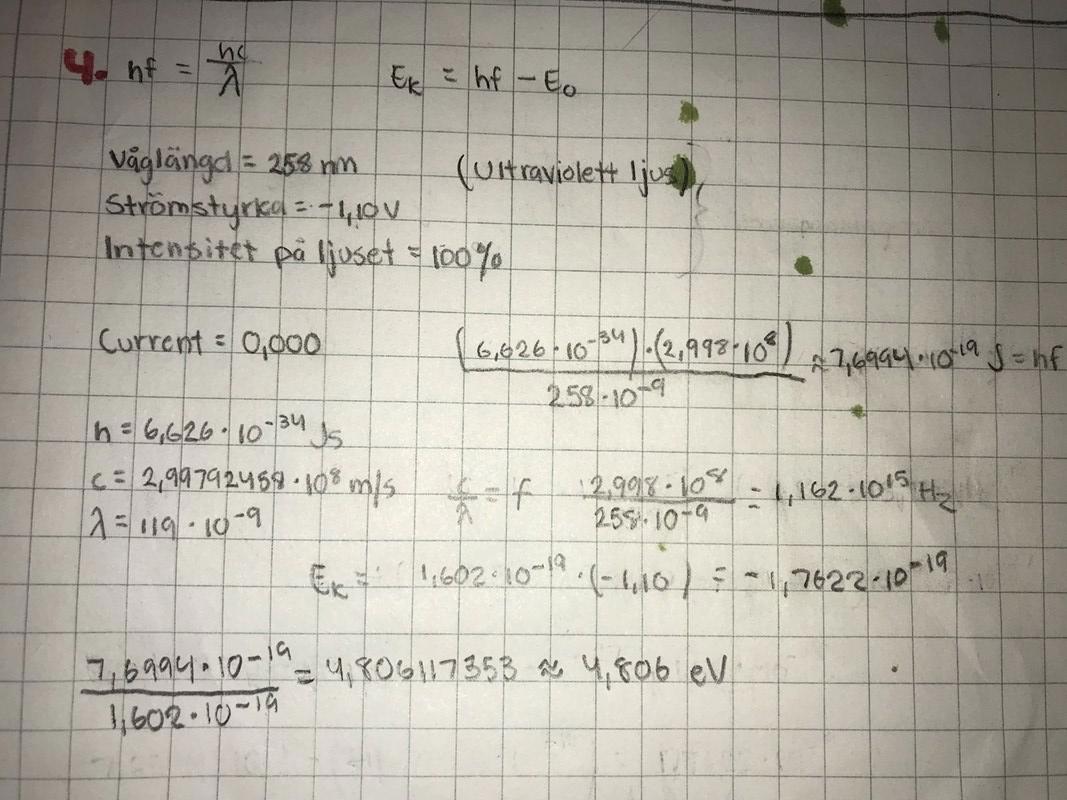 4. hf = hc/λ    Eₖ = hf − E₀
Våglängd = 258 nm    (Ultraviolett ljus)
Strömstyrka = −1,10V
Intensitet på ljuset = 100%
Current = 0,000    (6,626·10⁻³⁴)·(2,998·10⁸)/258·10⁻⁹ ≈ 7,6994·10⁻¹⁹ J = hf
h = 6,626·10⁻³⁴ Js
c = 2,99792458·10⁸ m/s    c/λ = f    2,998·10⁸/258·10⁻⁹ = 1,162·10¹⁵ Hz
λ = 119·10⁻⁹
Eₖ = 1,602·10⁻¹⁹·(−1,10) = −1,7622·10⁻¹⁹
7,6994·10⁻¹⁹/1,602·10⁻¹⁹ = 4,806117353 ≈ 4,806 eV